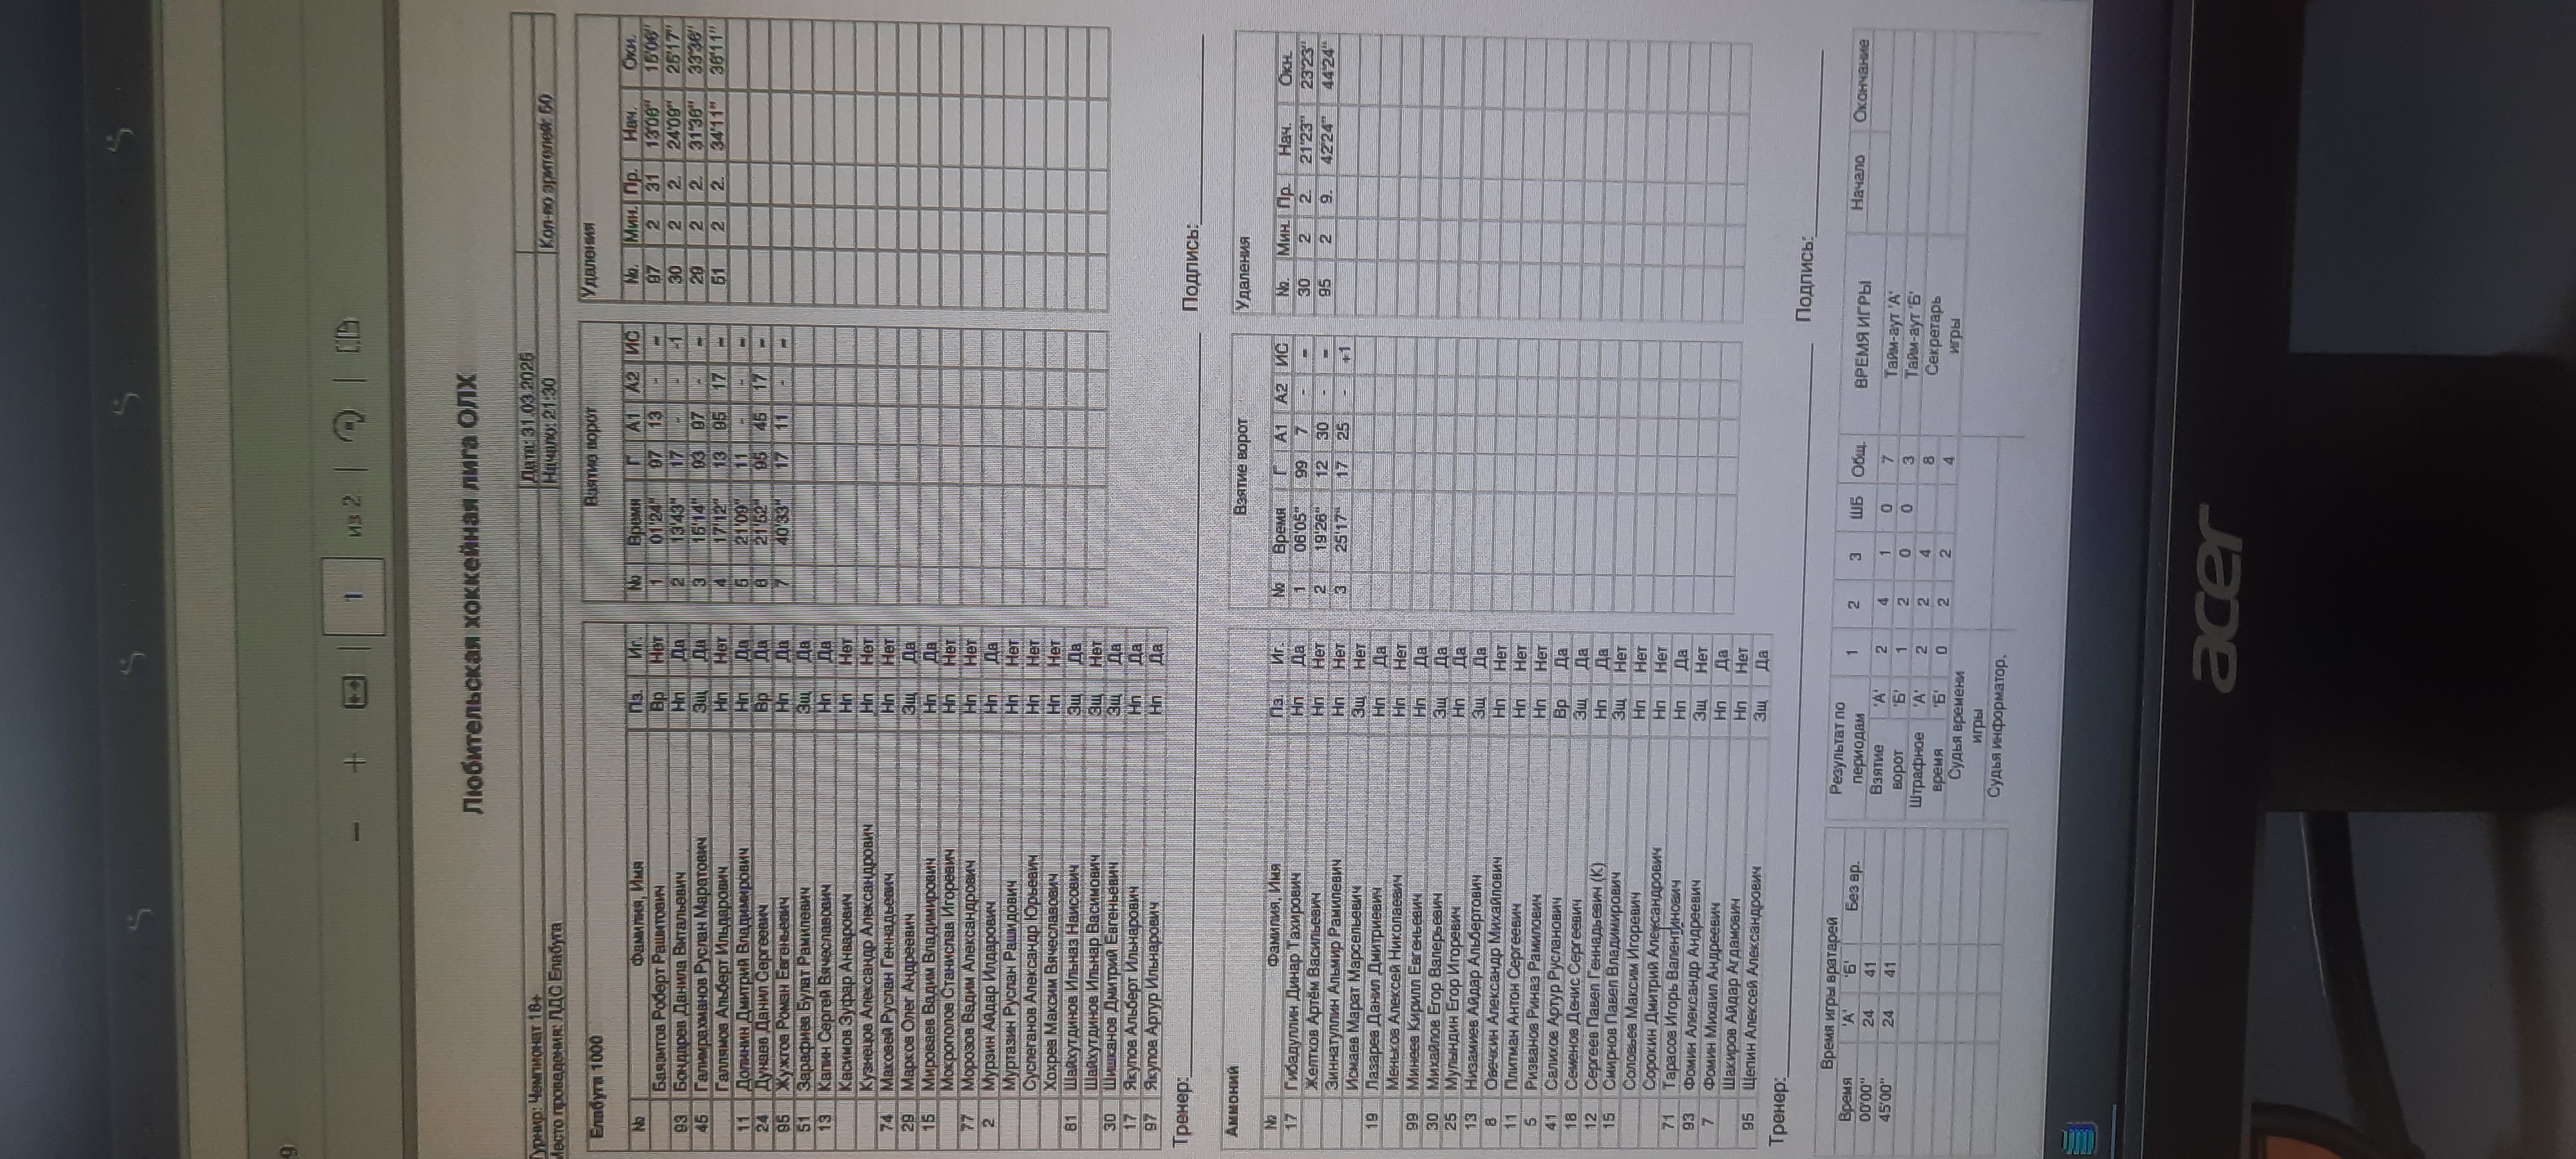 1 из 2
Любительская хоккейная лига ОЛХ
Турнир: Чемпионат 18+ Дата: 31.03.2025
Место проведения: ЛДС Елабуга Начало: 21:30 Кол-во зрителей: 50
Елабуга 1000 Взятие ворот Удаления
№ Фамилия, Имя Пз. Иг. № Время Г А1 А2 ИС №. Мин. Пр. Нач. Окн.
Баязитов Роберт Рашитович Вр Нет 1 01'24" 97 13 - = 97 2 31 13'06" 15'06"
93 Бондарев Данила Витальевич Нп Да 2 13'43" 17 - - -1 30 2 2. 24'09" 25'17"
45 Галимрахманов Руслан Маратович Зщ Да 3 15'14" 93 97 - = 29 2 2. 31'36" 33'36"
Галлямов Альберт Ильдарович Нп Нет 4 17'12" 13 95 17 = 51 2 2. 34'11" 36'11"
11 Долинин Дмитрий Владимирович Нп Да 5 21'09" 11 - - =
24 Дунаев Данил Сергеевич Вр Да 6 21'52" 95 45 17 =
95 Жужгов Роман Евгеньевич Нп Да 7 40'33" 17 11 - =
51 Зарариев Булат Рамилевич Зщ Да
13 Капин Сергей Вячеславович Нп Да
Касимов Зуфар Анварович Нп Нет
Кузнецов Александр Александрович Нп Нет
74 Маковей Руслан Геннадьевич Нп Нет
29 Марков Олег Андреевич Зщ Да
15 Мироваев Вадим Владимирович Нп Да
Мокрополов Станислав Игоревич Нп Нет
77 Морозов Вадим Александрович Нп Нет
2 Мурзин Айдар Илдарович Нп Да
Муртазин Руслан Рашидович Нп Нет
Суслеганов Александр Юрьевич Нп Нет
Хохрев Максим Вячеславович Нп Нет
81 Шайхутдинов Ильназ Наисович Зщ Да
Шайхутдинов Ильнар Васимович Зщ Нет
30 Шишканов Дмитрий Евгеньевич Зщ Да
17 Якупов Альберт Ильнарович Нп Да
97 Якупов Артур Ильнарович Нп Да
Тренер: Подпись:
Аммоний Взятие ворот Удаления
№ Фамилия, Имя Пз. Иг. № Время Г А1 А2 ИС №. Мин. Пр. Нач. Окн.
17 Гибадуллин Динар Тахирович Нп Да 1 06'05" 99 7 - = 30 2 2. 21'23" 23'23"
Желтков Артём Васильевич Нп Нет 2 19'26" 12 30 - = 95 2 9. 42'24" 44'24"
Зиннатуллин Альмир Рамилевич Нп Нет 3 25'17" 17 25 - +1
Исмаев Марат Марсельевич Зщ Нет
19 Лазарев Данил Дмитриевич Нп Да
Меньков Алексей Николаевич Нп Нет
99 Минеев Кирилл Евгеньевич Нп Да
30 Михайлов Егор Валерьевич Зщ Да
25 Мулындин Егор Игоревич Нп Да
13 Низамиев Айдар Альбертович Зщ Да
8 Овечкин Александр Михайлович Нп Нет
11 Плитман Антон Сергеевич Нп Нет
5 Ризванов Риназ Рамилович Нп Нет
41 Салихов Артур Русланович Вр Да
18 Семенов Денис Сергеевич Зщ Да
12 Сергеев Павел Геннадьевич (К) Нп Да
15 Смирнов Павел Владимирович Зщ Нет
Соловьев Максим Игоревич Нп Нет
Сорокин Дмитрий Александрович Нп Нет
71 Тарасов Игорь Валентинович Нп Да
93 Фомин Александр Андреевич Зщ Нет
7 Фомин Михаил Андреевич Нп Да
Шакиров Айдар Агдамович Нп Нет
95 Щепин Алексей Александрович Зщ Да
Тренер: Подпись:
Время игры вратарей Результат по периодам 1 2 3 ШБ Общ. ВРЕМЯ ИГРЫ Начало Окончание
Время 'А' 'Б' Без вр. Взятие ворот 'А' 2 4 1 0 7 Тайм-аут 'А'
00'00" 24 41 'Б' 1 2 0 0 3 Тайм-аут 'Б'
45'00" 24 41 Штрафное время 'А' 2 2 4 8 Секретарь игры
'Б' 0 2 2 4
Судья времени игры
Судья информатор.
acer